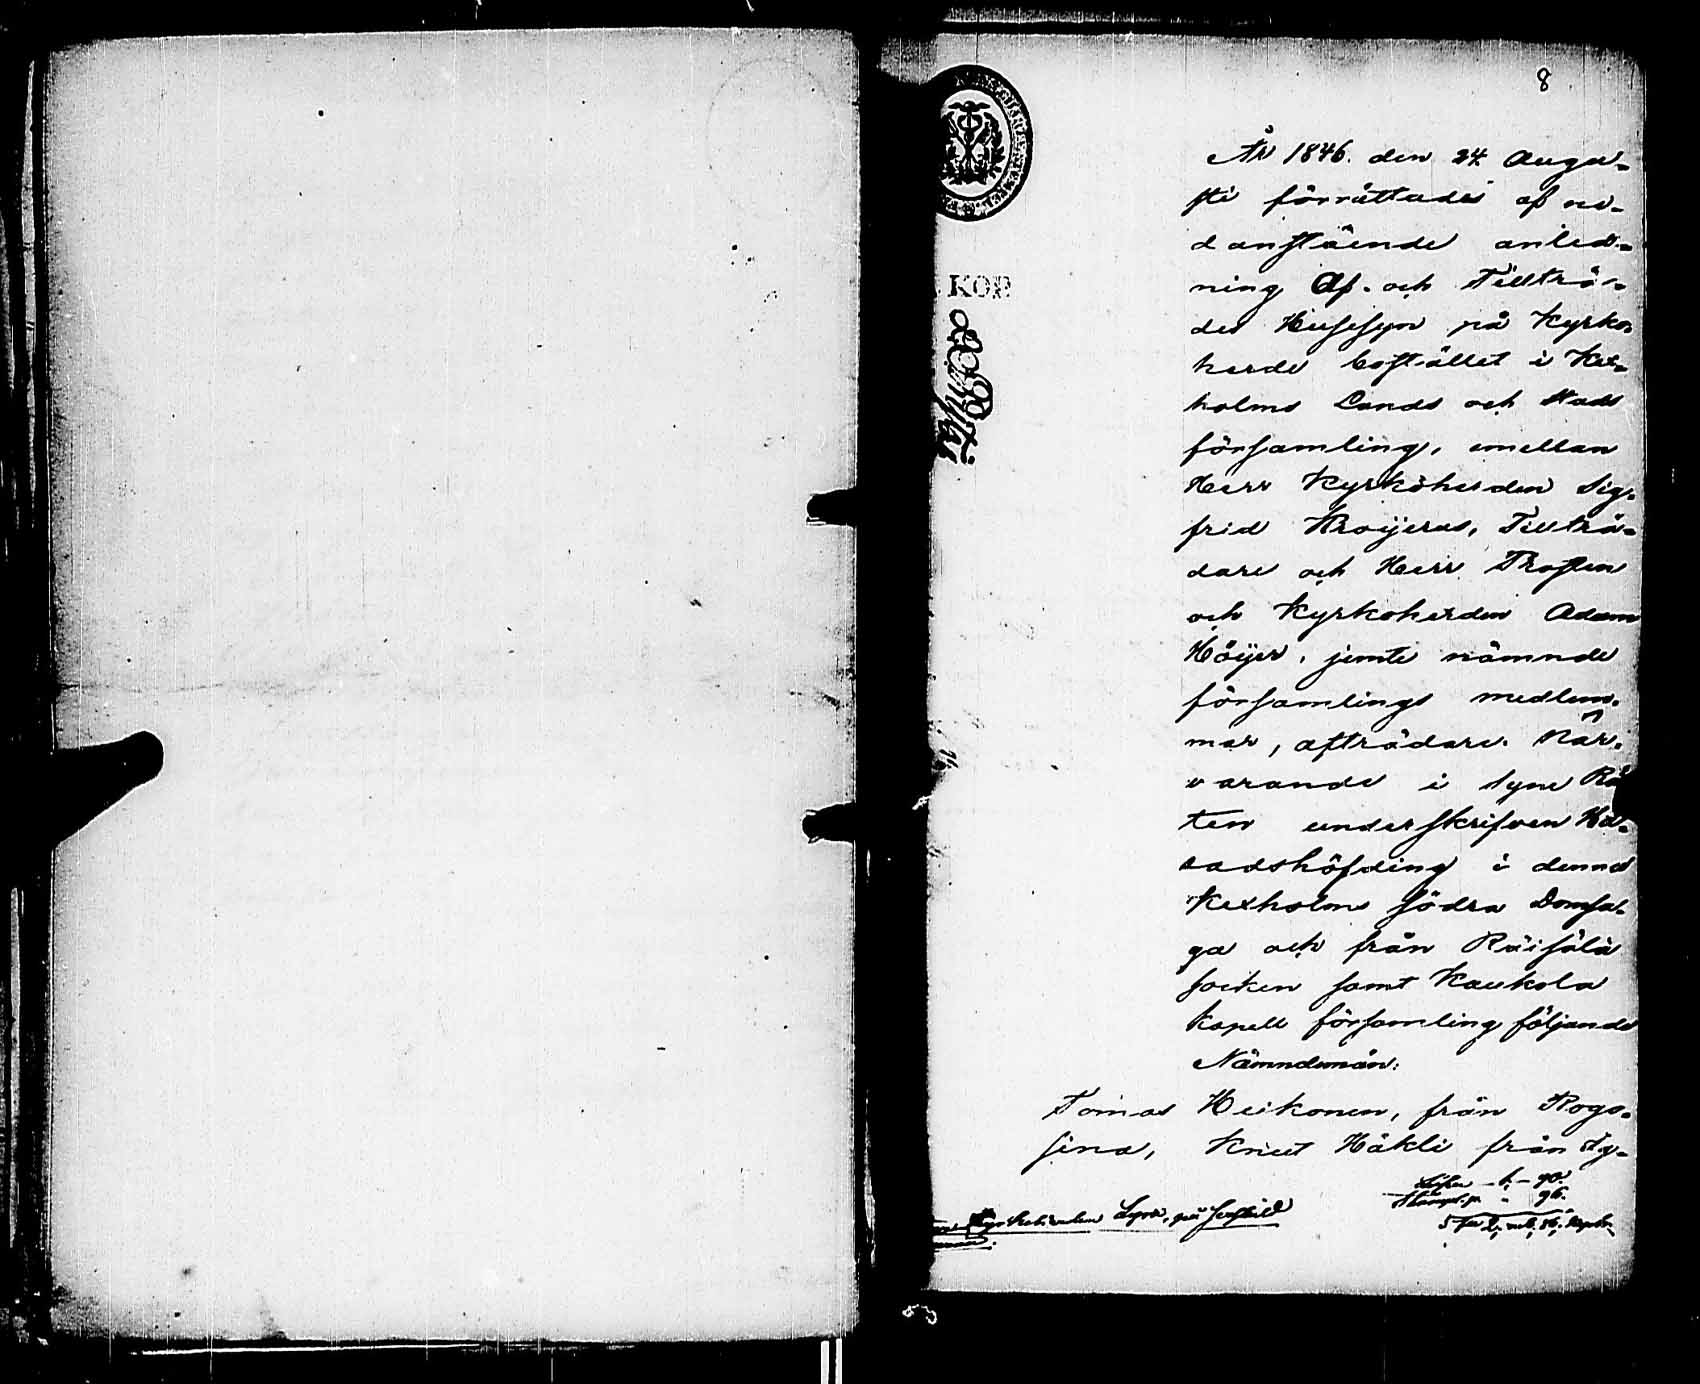 8
År 1846. den 24. Augu-
sti förrättades af ne-
danstående anled-
ning Af- och Tillträ-
des Husesyn på Kyrko-
herde bostället i Kex-
holms Lands och Stads
församling, emellan
Herr Kyrkoherden Sig-
frid Kroijerus, Tillträ-
dare och Herr Prosten
och Kyrkoherden Adam
Höijer, jemte nämnde
församlings medlem-
mar, afträdare. När-
varande i syne Rä
ten underskrifven Hä-
radshöfding i denna
Kexholms södra Domsa-
ga och från Räisälä
socken samt Kaukola
Kapell församling följande
Nämndemän:
Tomas Heikonen, från Rogo-
sina, Knut Häkli från